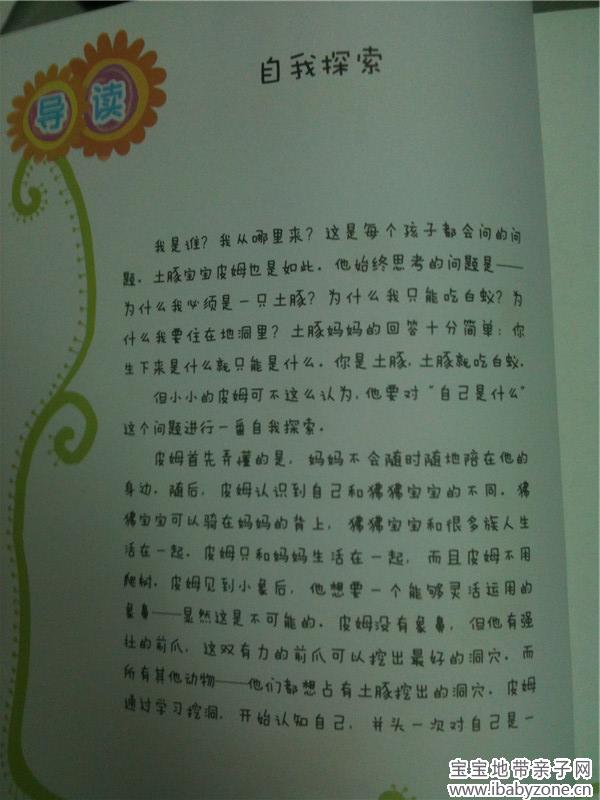 导读
自我探索
我是谁？我从哪里来？这是每个孩子都会问的问
题。土豚宝宝皮姆也是如此。他始终思考的问题是——
为什么我必须是一只土豚？为什么我只能吃白蚁？为
什么我要住在地洞里？土豚妈妈的回答十分简单：你
生下来是什么就只能是什么。你是土豚，土豚就吃白蚁。
但小小的皮姆可不这么认为，他要对“自己是什么”
这个问题进行一番自我探索。
皮姆首先弄懂的是，妈妈不会随时随地陪在他的
身边。随后，皮姆认识到自己和狒狒宝宝的不同。狒
狒宝宝可以骑在妈妈的背上，狒狒宝宝和很多族人生
活在一起。皮姆只和妈妈生活在一起，而且皮姆不用
爬树。皮姆见到小象后，他想要一个能够灵活运用的
象鼻——显然这是不可能的。皮姆没有象鼻，但他有强
壮的前爪，这双有力的前爪可以挖出最好的洞穴。而
所有其他动物——他们都想占有土豚挖出的洞穴。皮姆
通过学习挖洞，开始认知自己，并头一次对自己是一
宝宝地带亲子网
www.ibabyzone.cn